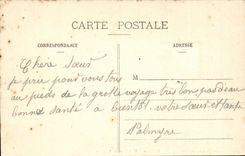 CARTE POSTALE
CORRESPONDANCE
ADRESSE
Chere Sœur
je prie pour vous tous
M
au pieds de la grotte voyage très bon pas d'eau
bonne santé à bientôt. votre sœur et tante
Palmyre